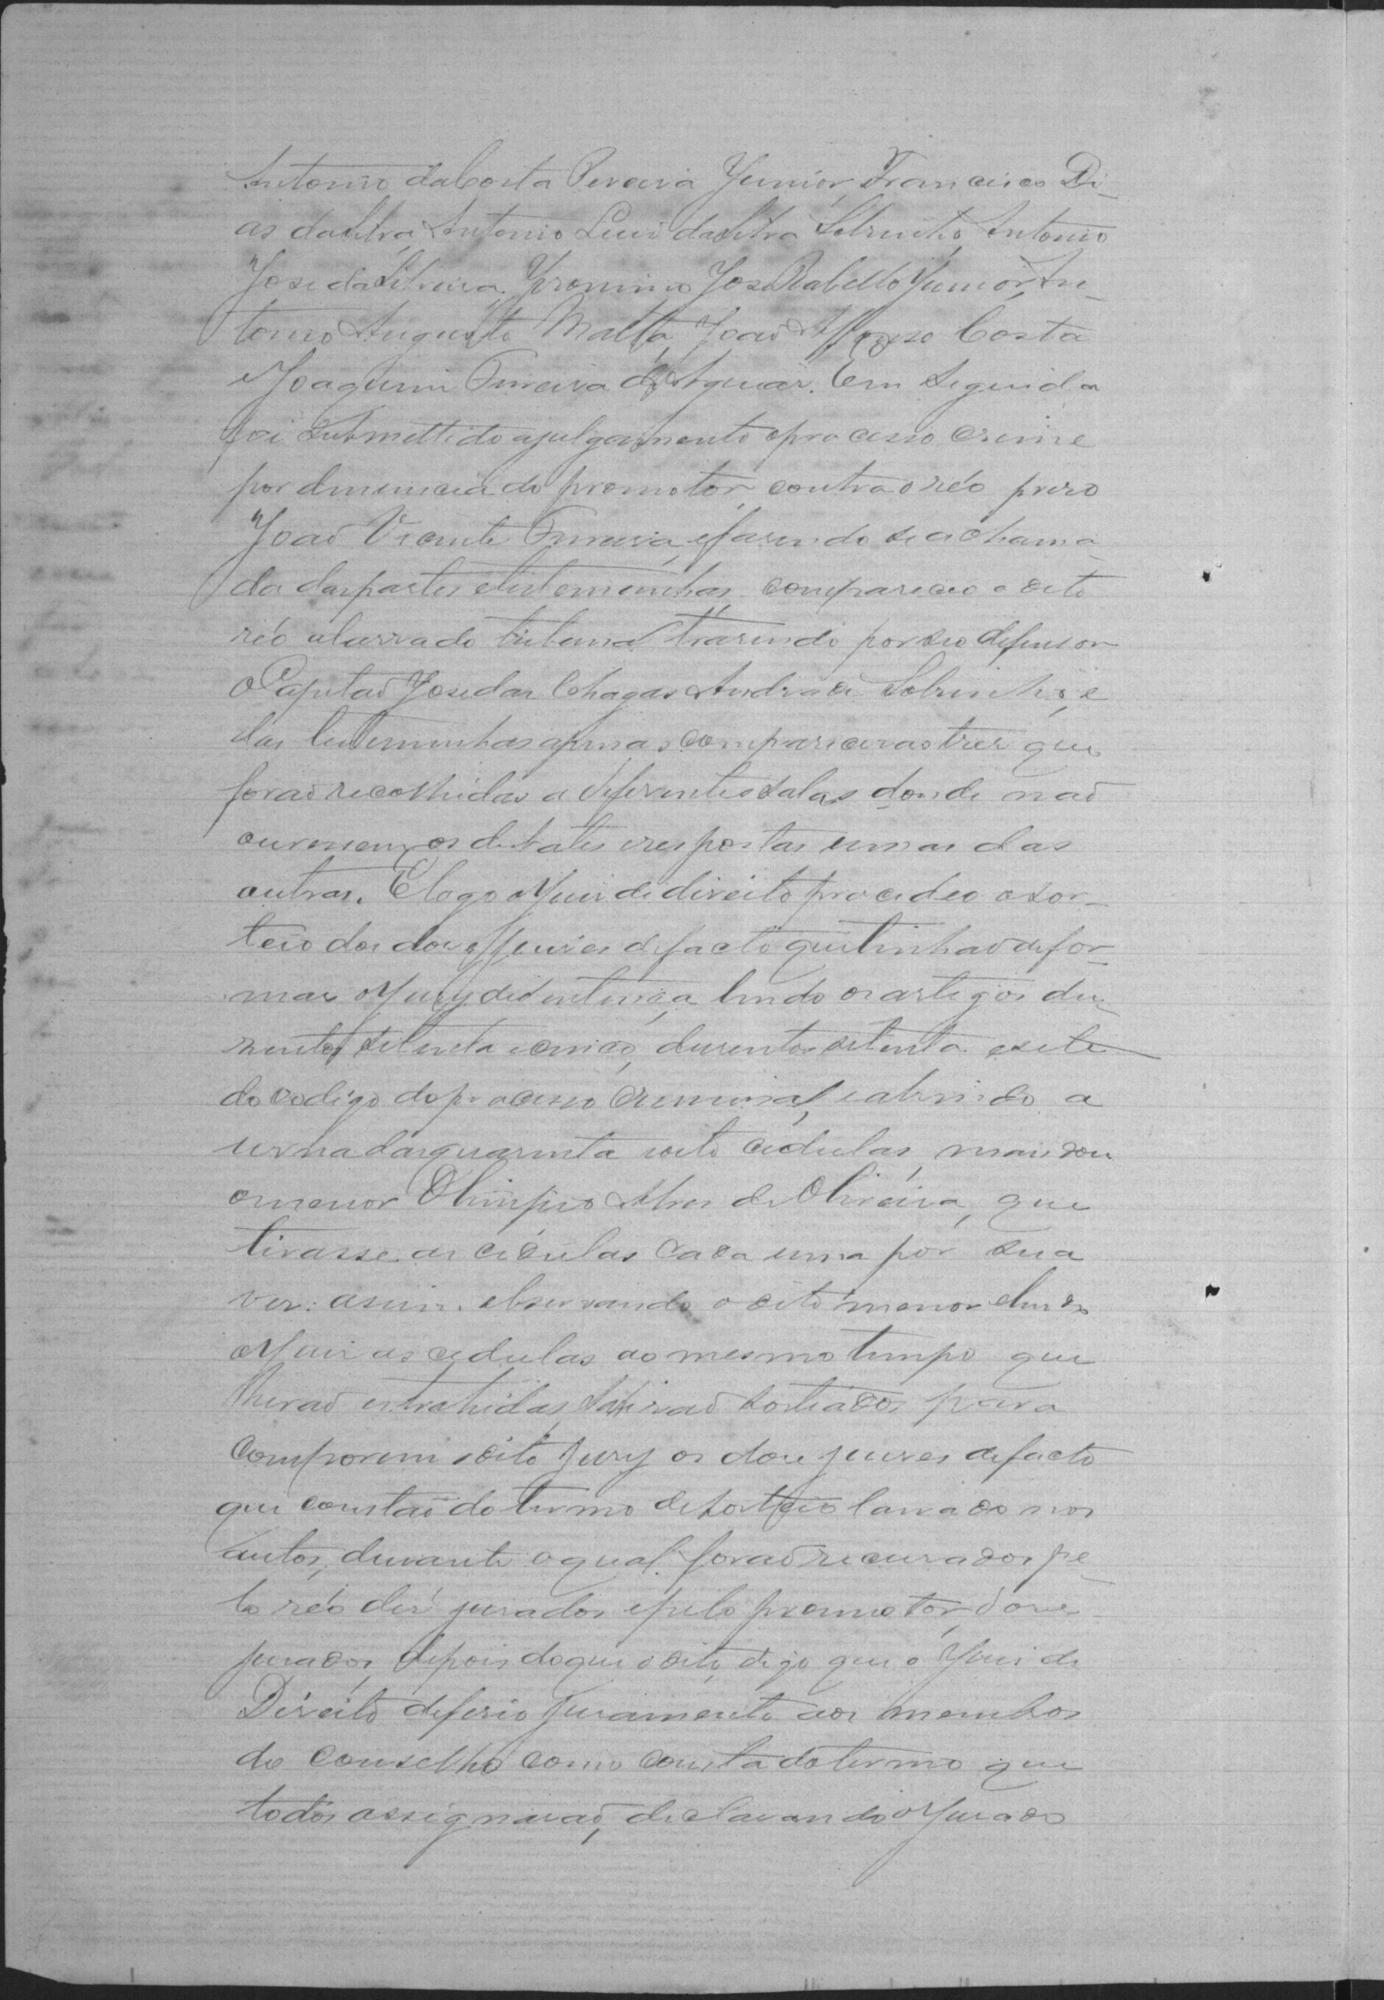 Antonio da Costa Pereira Junior, Francisco Di-
as da Silva, Antonio Luiz da Silva Sobrinho, Antonio
Jose da Silveira, Jeronimo Jose Rabello Junior, An-
tonio Augusto Malta, João Affonso Costa
e Joaquim Ferreira de Aguiar. Em seguida
foi submettido a julgamento o processo crime
por denuncia do promotor contra o réo prezo
João Vicente Ferreira, e fazendo se a chama-
da das partes e testemunhas compareceo o dito
réo a barra do tribunal trazendo por seo defensor
o Capitaõ Jose das Chagas Andrade Sobrinho, e
das testemunhas apenas comparecerao tres que
foraõ recolhidas a diferentes salas donde naõ
ouvissem os debates e respostas umas das
outras. E logo o Juiz de direito procedeo o sor-
teio dos doze Juizes de facto que tinhaõ de for-
mar o Jury de sentença, lendo os artigos du-
zentos setenta e cinco, duzentos setenta e sete
do codigo do processo criminal, e abrindo a
urna das quarenta e oito cedulas, mandou
o menor Olimpio Alves de Oliveira, que
tirasse as cedulas cada uma por sua
vez: assim observando o dito menor e lendo
o Juiz as cedulas ao mesmo tempo que
lheraõ extrahidas, sahiraõ sorteados para
comporem o dito Jury os doze juizes de facto
que constaõ do termo de sorteio lavrado nos
autos, durante o qual foraõ recuzados pe-
lo réo dez jurados e pelo promotor doze
jurados, depois do que o dito, digo que o Juiz de
Direito deferio juramento aos membros
do conselho como consta do termo que
todos assignaraõ, declarando o Jurado